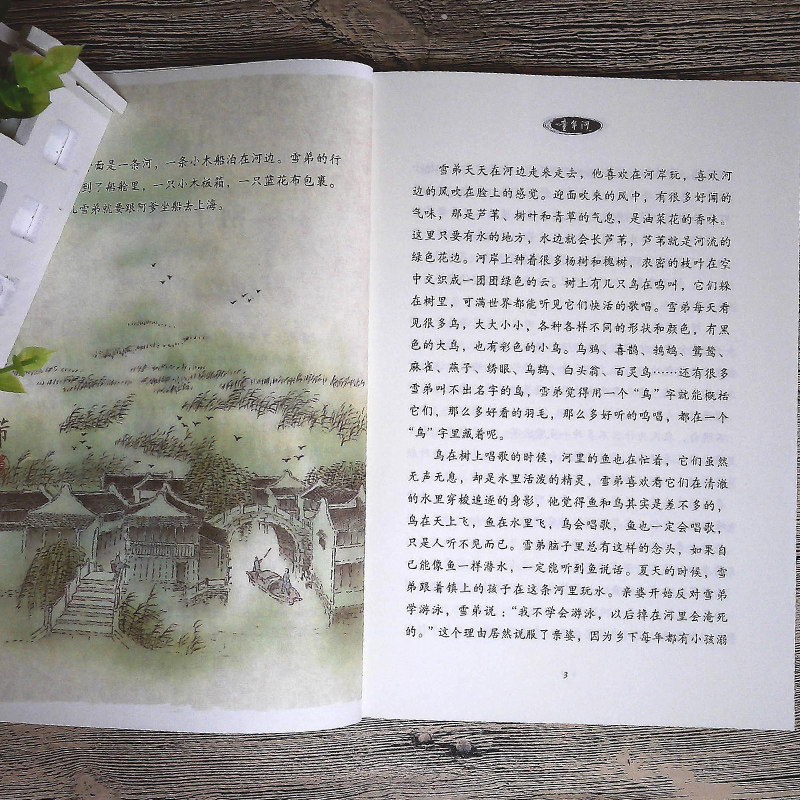 面是一条河，一条小木船泊在河边。雪弟的行
到了船舱里，一只小木板箱，一只蓝花布包裹。
雪弟就要跟阿爹坐船去上海。
节
童年河
雪弟天天在河边走来走去，他喜欢在河岸玩，喜欢河
边的风吹在脸上的感觉。迎面吹来的风中，有很多好闻的
气味，那是芦苇、树叶和青草的气息，是油菜花的香味。
这里只要有水的地方，水边就会长芦苇，芦苇就是河流的
绿色花边。河岸上种着很多杨树和槐树，浓密的枝叶在空
中交织成一团团绿色的云。树上有几只鸟在鸣叫，它们躲
在树里，可满世界都能听见它们快活的歌唱。雪弟每天看
见很多鸟，大大小小，各种各样不同的形状和颜色，有黑
色的大鸟，也有彩色的小鸟。乌鸦、喜鹊、鹁鸪、鹭鸶、
麻雀、燕子、绣眼、乌鸫、白头翁、百灵鸟……还有很多
雪弟叫不出名字的鸟，雪弟觉得用一个“鸟”字就能概括
它们，那么多好看的羽毛，那么多好听的鸣唱，都在一个
“鸟”字里藏着呢。
鸟在树上唱歌的时候，河里的鱼也在忙着，它们虽然
无声无息，却是水里活泼的精灵，雪弟喜欢看它们在清澈
的水里穿梭追逐的身影，他觉得鱼和鸟其实是差不多的，
鸟在天上飞，鱼在水里飞，鸟会唱歌，鱼也一定会唱歌，
只是人听不见而已。雪弟脑子里总有这样的念头，如果自
己能像鱼一样潜水，一定能听到鱼说话。夏天的时候，雪
弟跟着镇上的孩子在这条河里玩水。亲婆开始反对雪弟
学游泳，雪弟说：“我不学会游泳，以后掉在河里会淹死
的。”这个理由居然说服了亲婆，因为乡下每年都有小孩溺
3